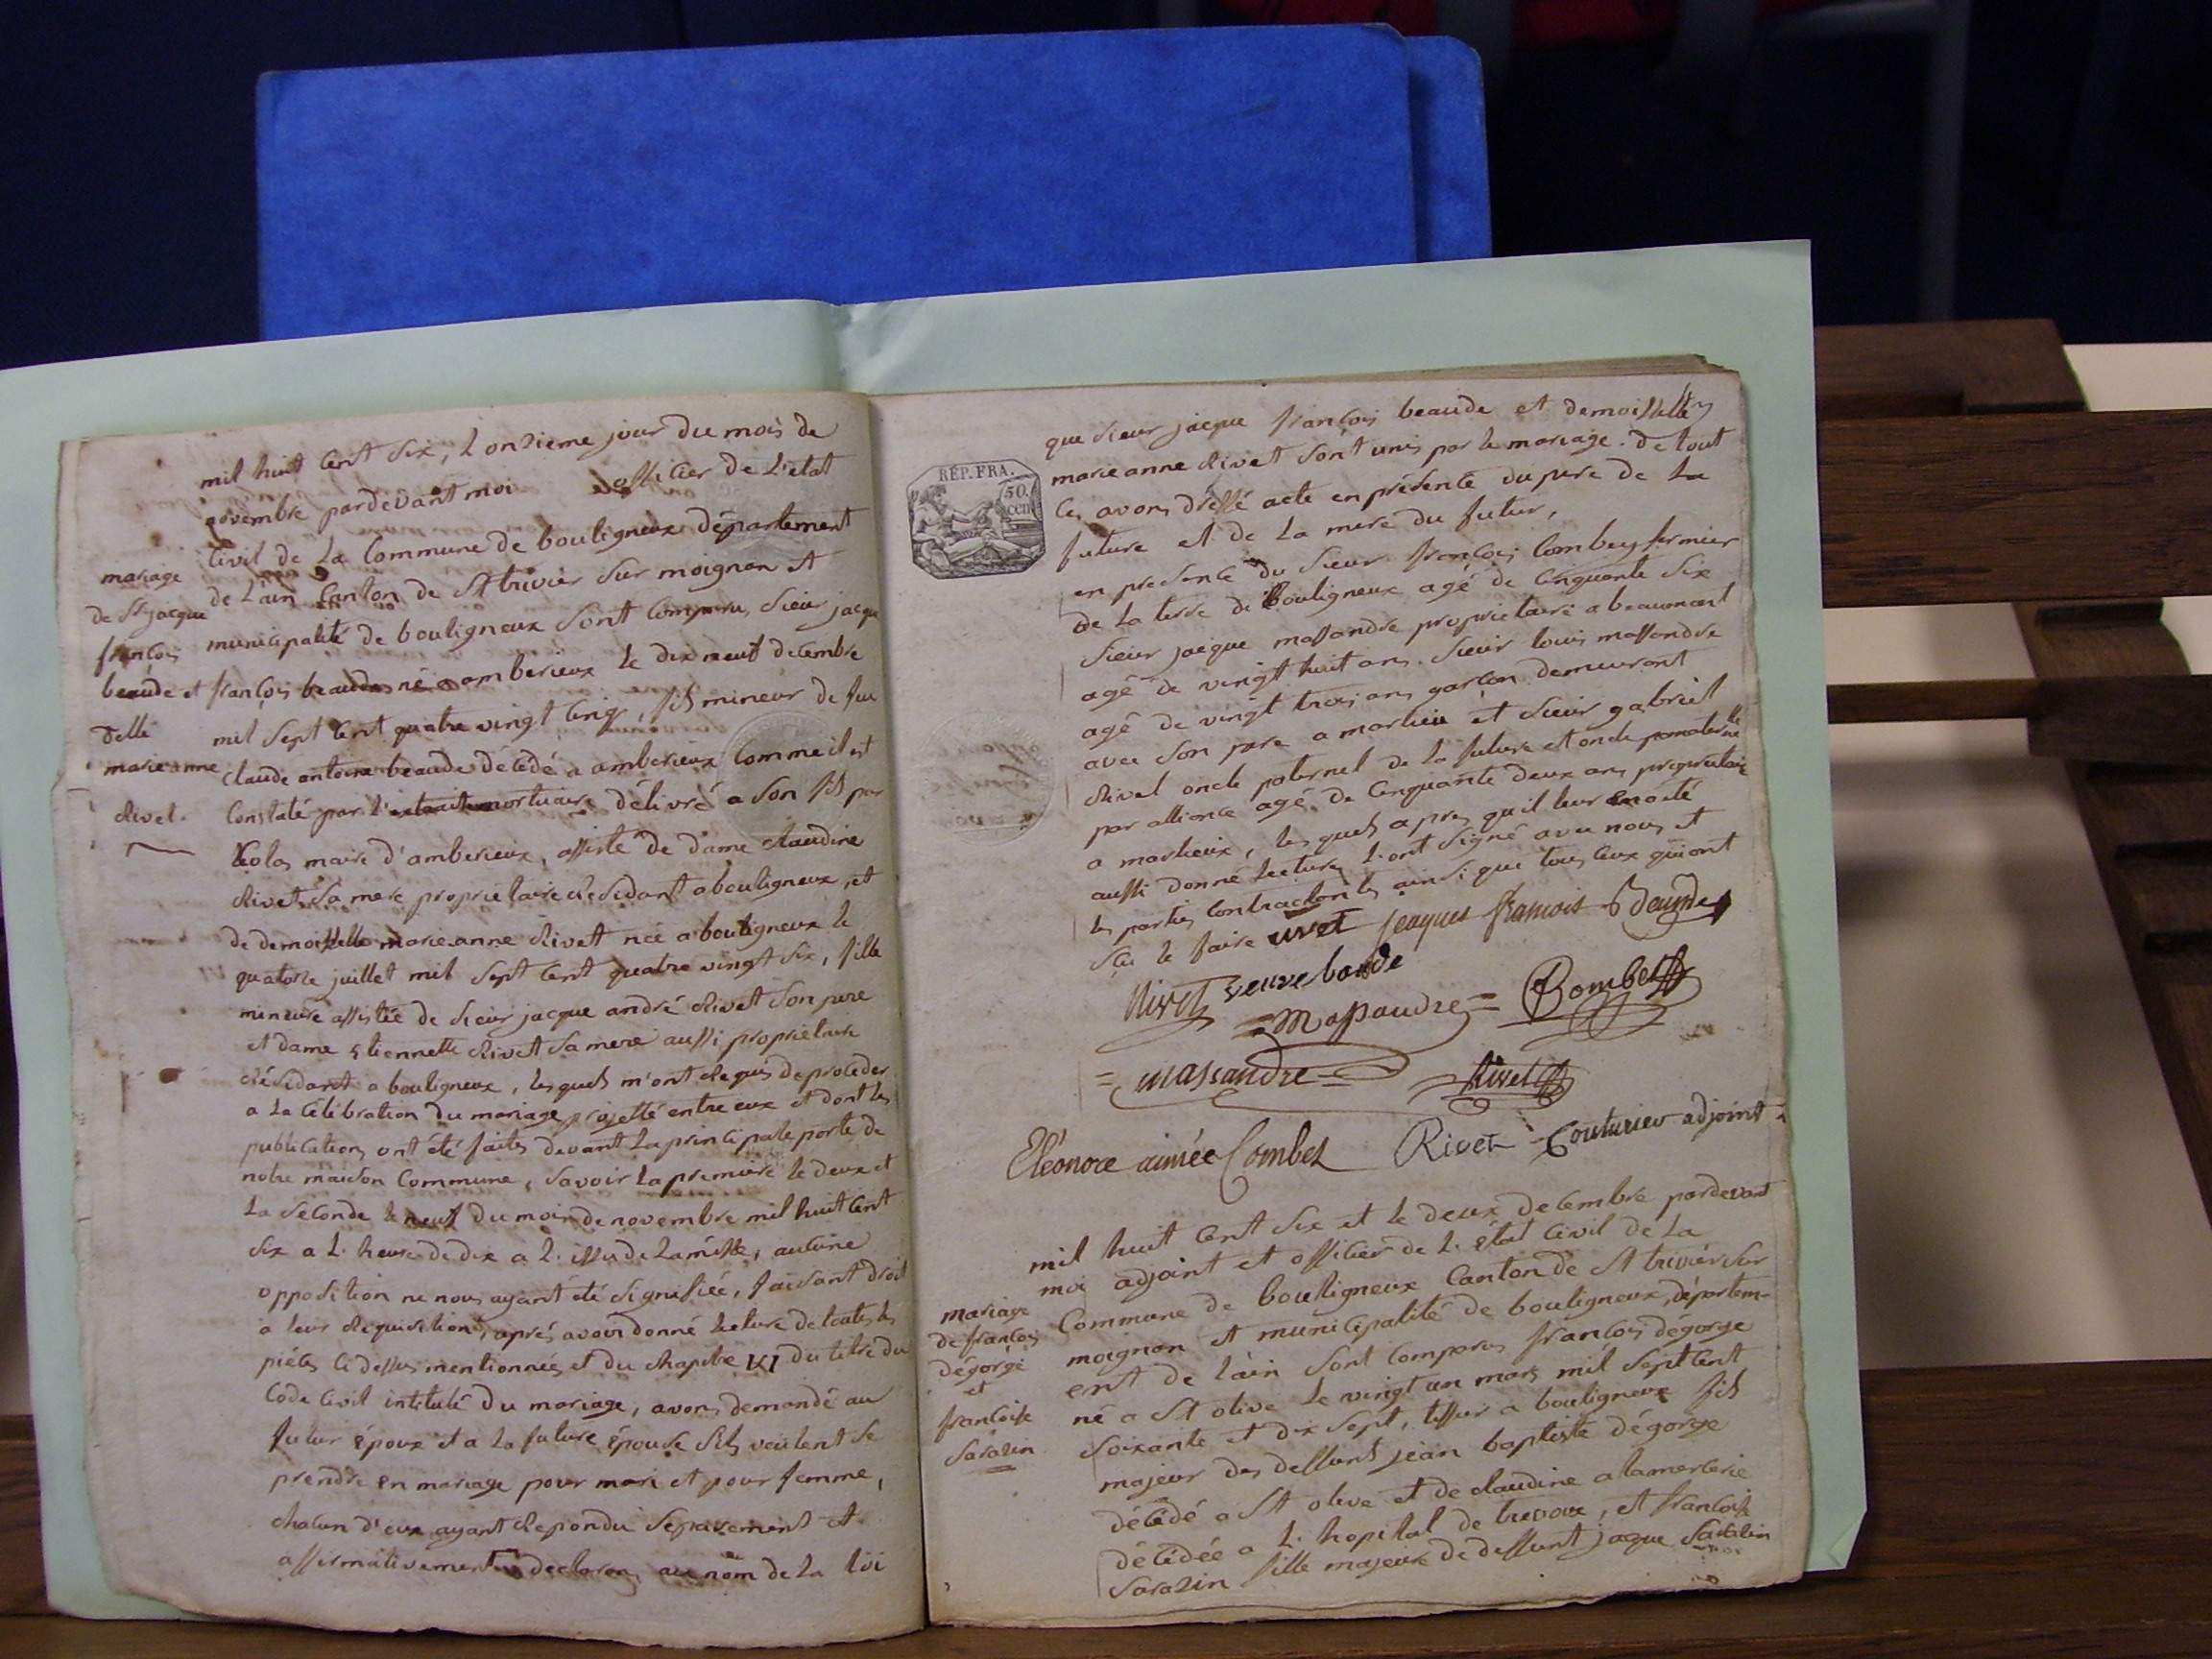 mil huit cent six, l'onzieme jour du mois de
novembre pardevant moi officier de l'état
civil de la commune de bouligneux département
de l'ain canton de St trivier sur moignan et
municipalité de bouligneux sont comparu, sieur jacque
françois beaude né a amberieux le dix neuf decembre
mil sept cent quatre vingt cinq, fils mineur de feu
claude antoine beaude décédé a amberieux comme il est
constaté par l'extrait mortuaire délivré a son fils par
maire d'amberieux, assisté de dame claudine
Rivet sa mere proprietaire residant a bouligneux, et
de demoiselle marie anne Rivet née a bouligneux le
quatorze juillet mil sept cent quatre vingt six, fille
mineure assistée de sieur jacque andré Rivet son pere
et dame etiennette Rivet sa mere aussi proprietaire
résidant a bouligneux, lesquels m'ont requis de proceder
a la célébration du mariage projetté entre eux et dont les
publications ont été faites devant la principale porte de
notre maison commune, savoir la premiere le deux et
la seconde le neuf du mois de novembre mil huit cent
six a l'heure de dix a l'issu de la messe, aucune
opposition ne nous ayant été signifiée, faisant droit
a leur requisition, aprés avoir donné lecture de toutes les
piéces ci dessus mentionnées et du chapitre VI du titre du
code civil intitulé du mariage, avons demandé au
futur époux et a la future épouse s'ils veulent se
prendre en mariage pour mari et pour femme,
chacun d'eux ayant repondu séparement et
affirmativement declarons au nom de la loi
mariage
de Sr jacque
françois
beaude et
delle
marie anne
Rivet.
que sieur jacque françois beaude et demoiselle
marie anne Rivet sont unis par le mariage. de tout
ce, avons dréssé acte en présence du pere de la
future et de la mere du futur,
en presence du sieur françois Combet fermier
de la terre de Bouligneux agé de cinquante six
sieur jacque massandre proprietaire a beaumont
agé de vingt huit ans. sieur louis massandre
agé de vingt trois ans garçon demeurant
avec son pere a marlieu et sieur gabriel
Rivet oncle paternel de la future et oncle maternelle
par alliance agé de cinquante deux ans proprietaire
a marlieux, les quels apres qu'il leur en a été
aussi donné lecture, l'ont signé avec nous et
les parties contractantes ainsi que tous ceux qui ont
sçu le faire rivet jeaques françois Beaude
Rivet veuve baude
=massandre= Combet
=massandre= Rivet
Eléonore aimée Combet Rivet Couturier adjoint
REP. FRA.
50.
cen
mil huit cent six et le deux decembre pardevant
moi adjoint et officier de l'état civil de la
commune de bouligneux canton de St trivier sur
moignan et municipalité de bouligneux, départem-
ent de l'ain sont comparus françois dégorge
né a St olive le vingt un mars mil sept cent
soixante et dix sept, tissur a bouligneux fils
majeur des deffunts jean baptiste dégorge
décédé a St olive et de claudine alamercerie
décédée a l'hopital de trevoux, et françoise
Sarazin fille majeure de deffunt jaque Sarazin
mariage
de françois
dégorge
et
françoise
Sarazin